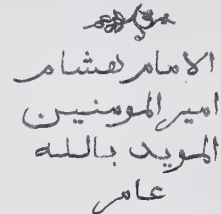 الامام هشام
امير المومنين
المويد بالله
عامر